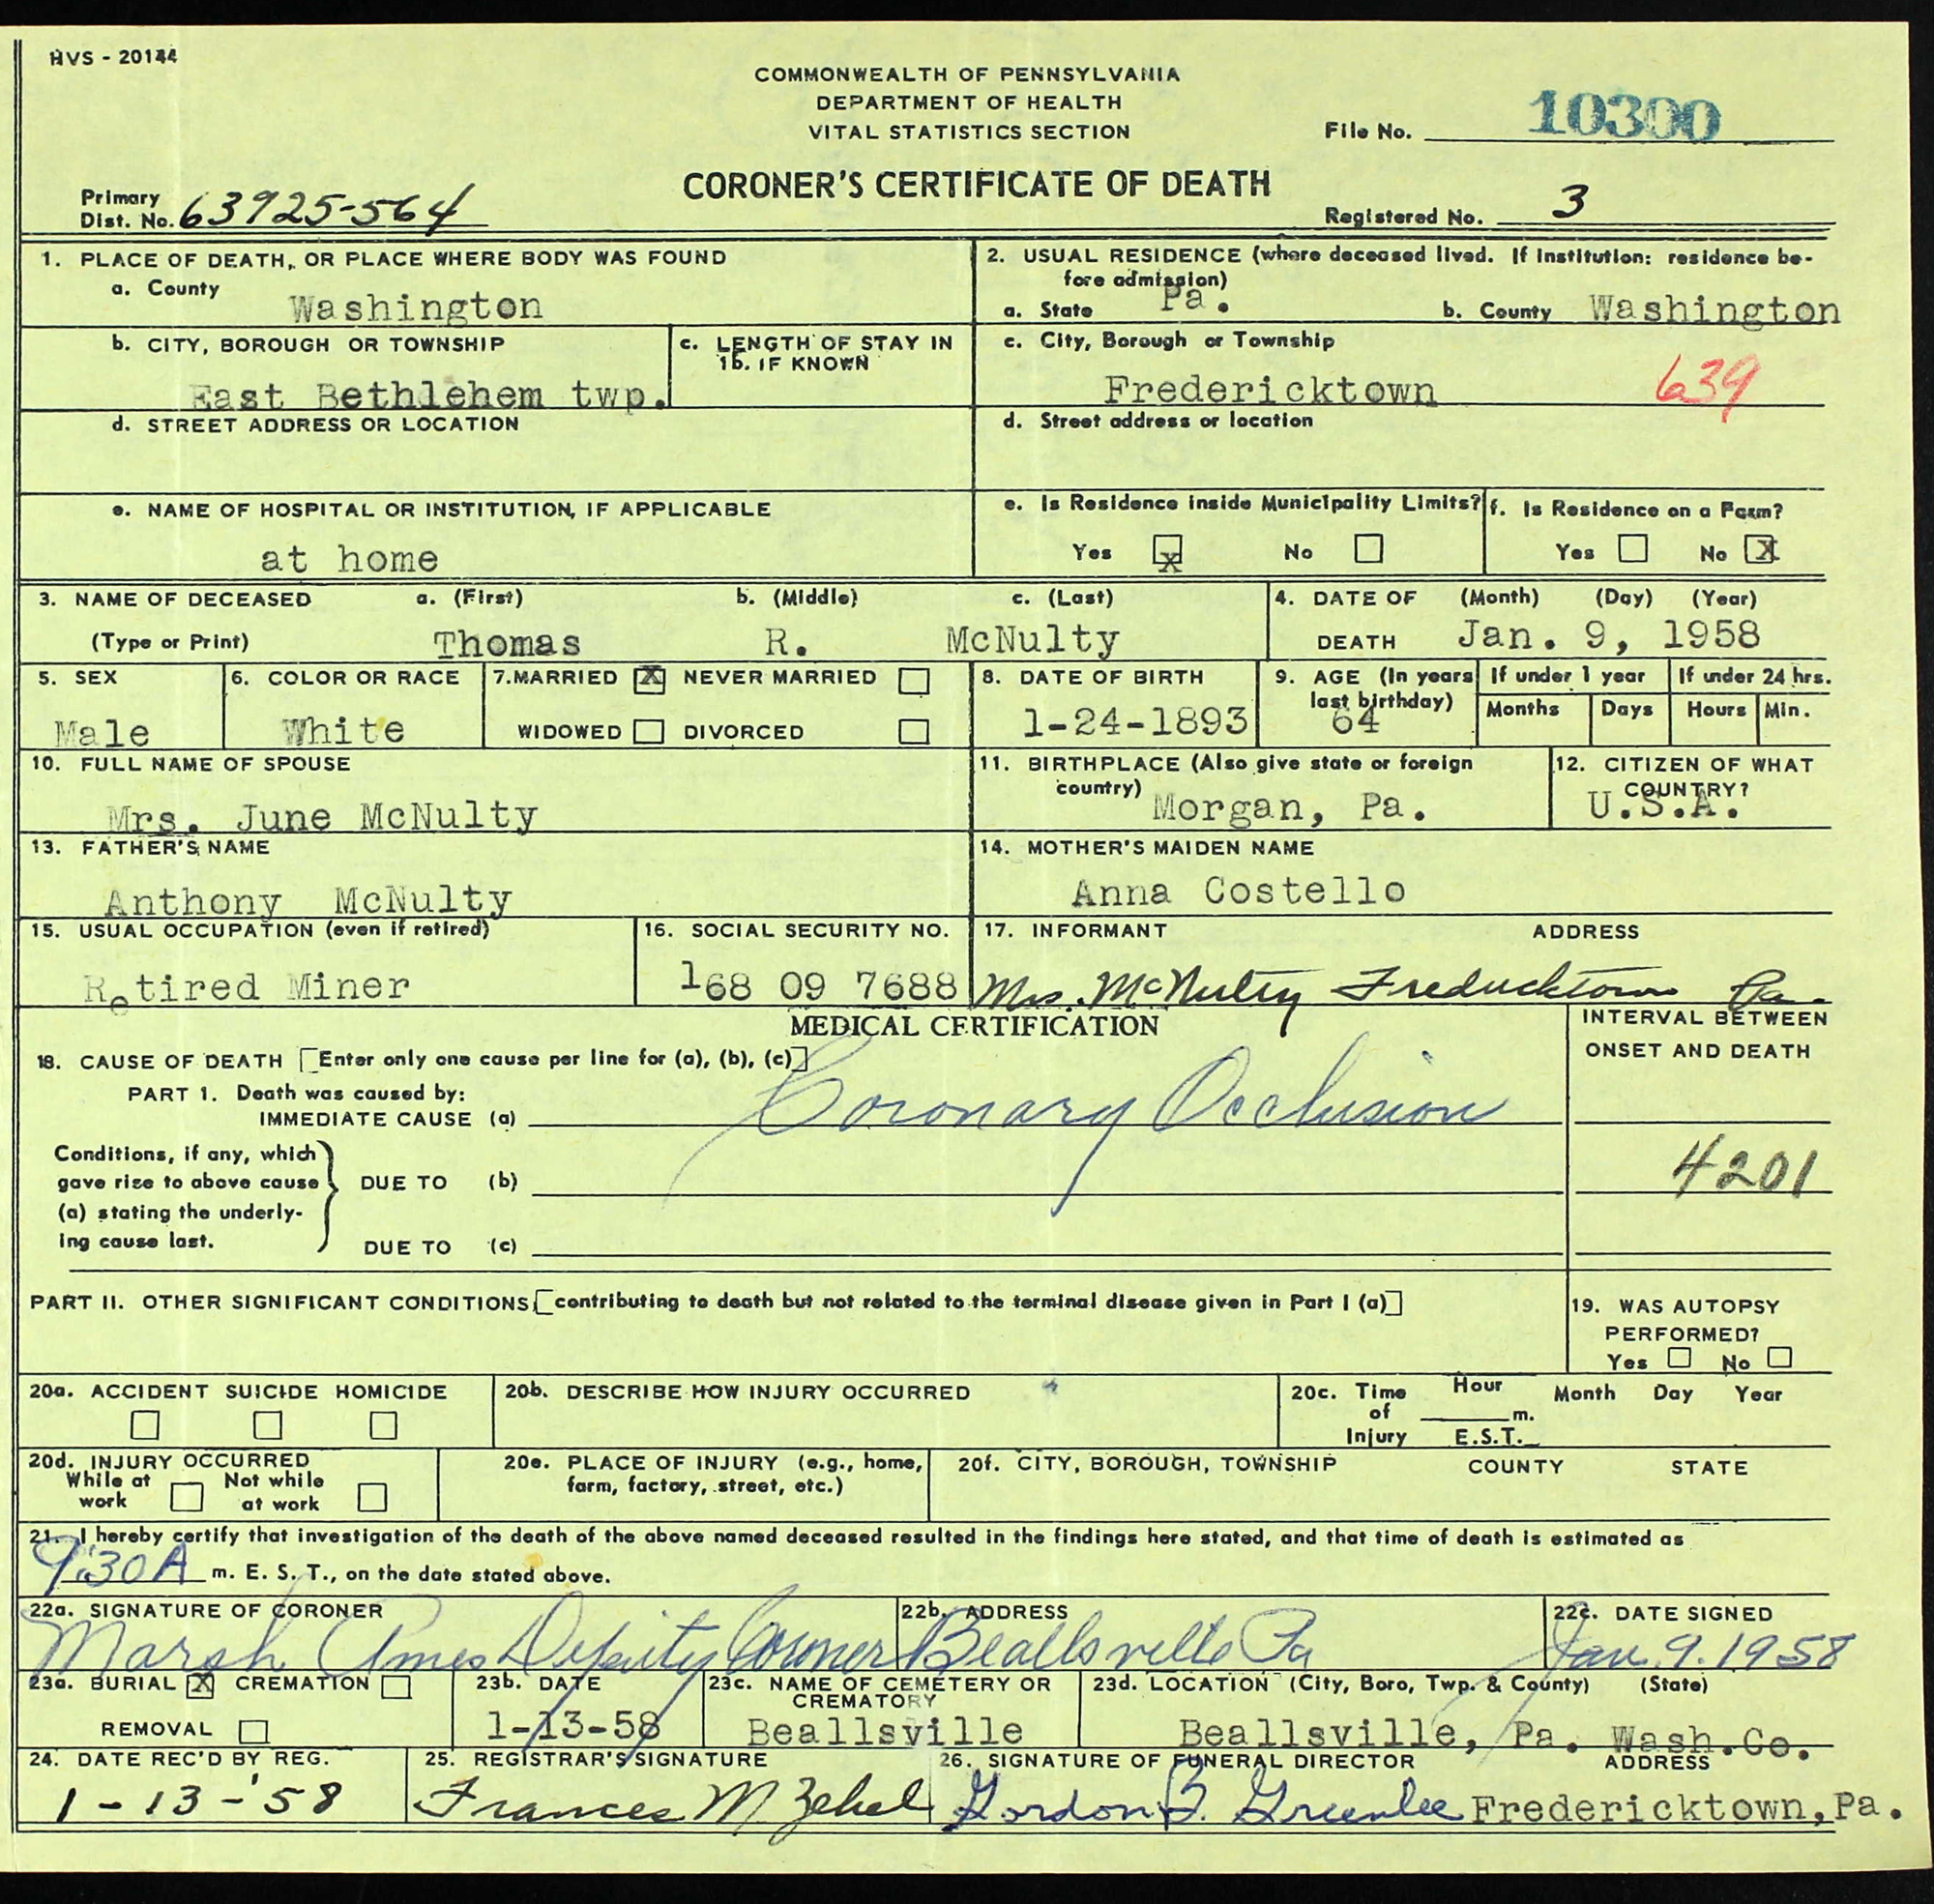 HVS - 20144
COMMONWEALTH OF PENNSYLVANIA
DEPARTMENT OF HEALTH
VITAL STATISTICS SECTION
File No. 10300
CORONER'S CERTIFICATE OF DEATH
Primary
Dist. No. 63925-564
Registered No. 3
1. PLACE OF DEATH, OR PLACE WHERE BODY WAS FOUND
a. County
Washington
2. USUAL RESIDENCE (where deceased lived. If institution: residence be-
fore admission)
a. State Pa. b. County Washington
b. CITY, BOROUGH OR TOWNSHIP
East Bethlehem twp.
c. LENGTH OF STAY IN
1b. IF KNOWN
c. City, Borough or Township
Fredericktown 639
d. STREET ADDRESS OR LOCATION
d. Street address or location
e. NAME OF HOSPITAL OR INSTITUTION, IF APPLICABLE
at home
e. Is Residence inside Municipality Limits?
Yes X No
f. Is Residence on a Farm?
Yes No X
3. NAME OF DECEASED a. (First) b. (Middle) c. (Last)
(Type or Print) Thomas R. McNulty
4. DATE OF (Month) (Day) (Year)
DEATH Jan. 9, 1958
5. SEX
Male
6. COLOR OR RACE
White
7. MARRIED X NEVER MARRIED
WIDOWED DIVORCED
8. DATE OF BIRTH
1-24-1893
9. AGE (In years
last birthday)
64
If under 1 year
Months Days
If under 24 hrs.
Hours Min.
10. FULL NAME OF SPOUSE
Mrs. June McNulty
11. BIRTHPLACE (Also give state or foreign
country) Morgan, Pa.
12. CITIZEN OF WHAT
COUNTRY?
U.S.A.
13. FATHER'S NAME
Anthony McNulty
14. MOTHER'S MAIDEN NAME
Anna Costello
15. USUAL OCCUPATION (even if retired)
Retired Miner
16. SOCIAL SECURITY NO.
168 09 7688
17. INFORMANT ADDRESS
Mrs. McNulty Fredericktown Pa.
MEDICAL CERTIFICATION
INTERVAL BETWEEN
ONSET AND DEATH
18. CAUSE OF DEATH [Enter only one cause per line for (a), (b), (c)]
PART 1. Death was caused by:
IMMEDIATE CAUSE (a) Coronary Occlusion
Conditions, if any, which
gave rise to above cause
(a) stating the underly-
ing cause last.
DUE TO (b)
4201
DUE TO (c)
PART II. OTHER SIGNIFICANT CONDITIONS [contributing to death but not related to the terminal disease given in Part I (a)]
19. WAS AUTOPSY
PERFORMED?
Yes No
20a. ACCIDENT SUICIDE HOMICIDE
20b. DESCRIBE HOW INJURY OCCURRED
20c. Time
of
Injury
Hour Month Day Year
m.
E.S.T.
20d. INJURY OCCURRED
While at
work
Not while
at work
20e. PLACE OF INJURY (e.g., home,
farm, factory, street, etc.)
20f. CITY, BOROUGH, TOWNSHIP COUNTY STATE
21. I hereby certify that investigation of the death of the above named deceased resulted in the findings here stated, and that time of death is estimated as
9:30A m. E. S. T., on the date stated above.
22a. SIGNATURE OF CORONER
Marsh Ames Deputy Coroner
22b. ADDRESS
Beallsville Pa
22c. DATE SIGNED
Jan. 9. 1958
23a. BURIAL X CREMATION
REMOVAL
23b. DATE
1-13-58
23c. NAME OF CEMETERY OR
CREMATORY
Beallsville
23d. LOCATION (City, Boro, Twp. & County) (State)
Beallsville, Pa. Wash.Co.
24. DATE REC'D BY REG.
1-13-'58
25. REGISTRAR'S SIGNATURE
Frances M Zebel
26. SIGNATURE OF FUNERAL DIRECTOR ADDRESS
Gordon B. Greenlee Fredericktown, Pa.